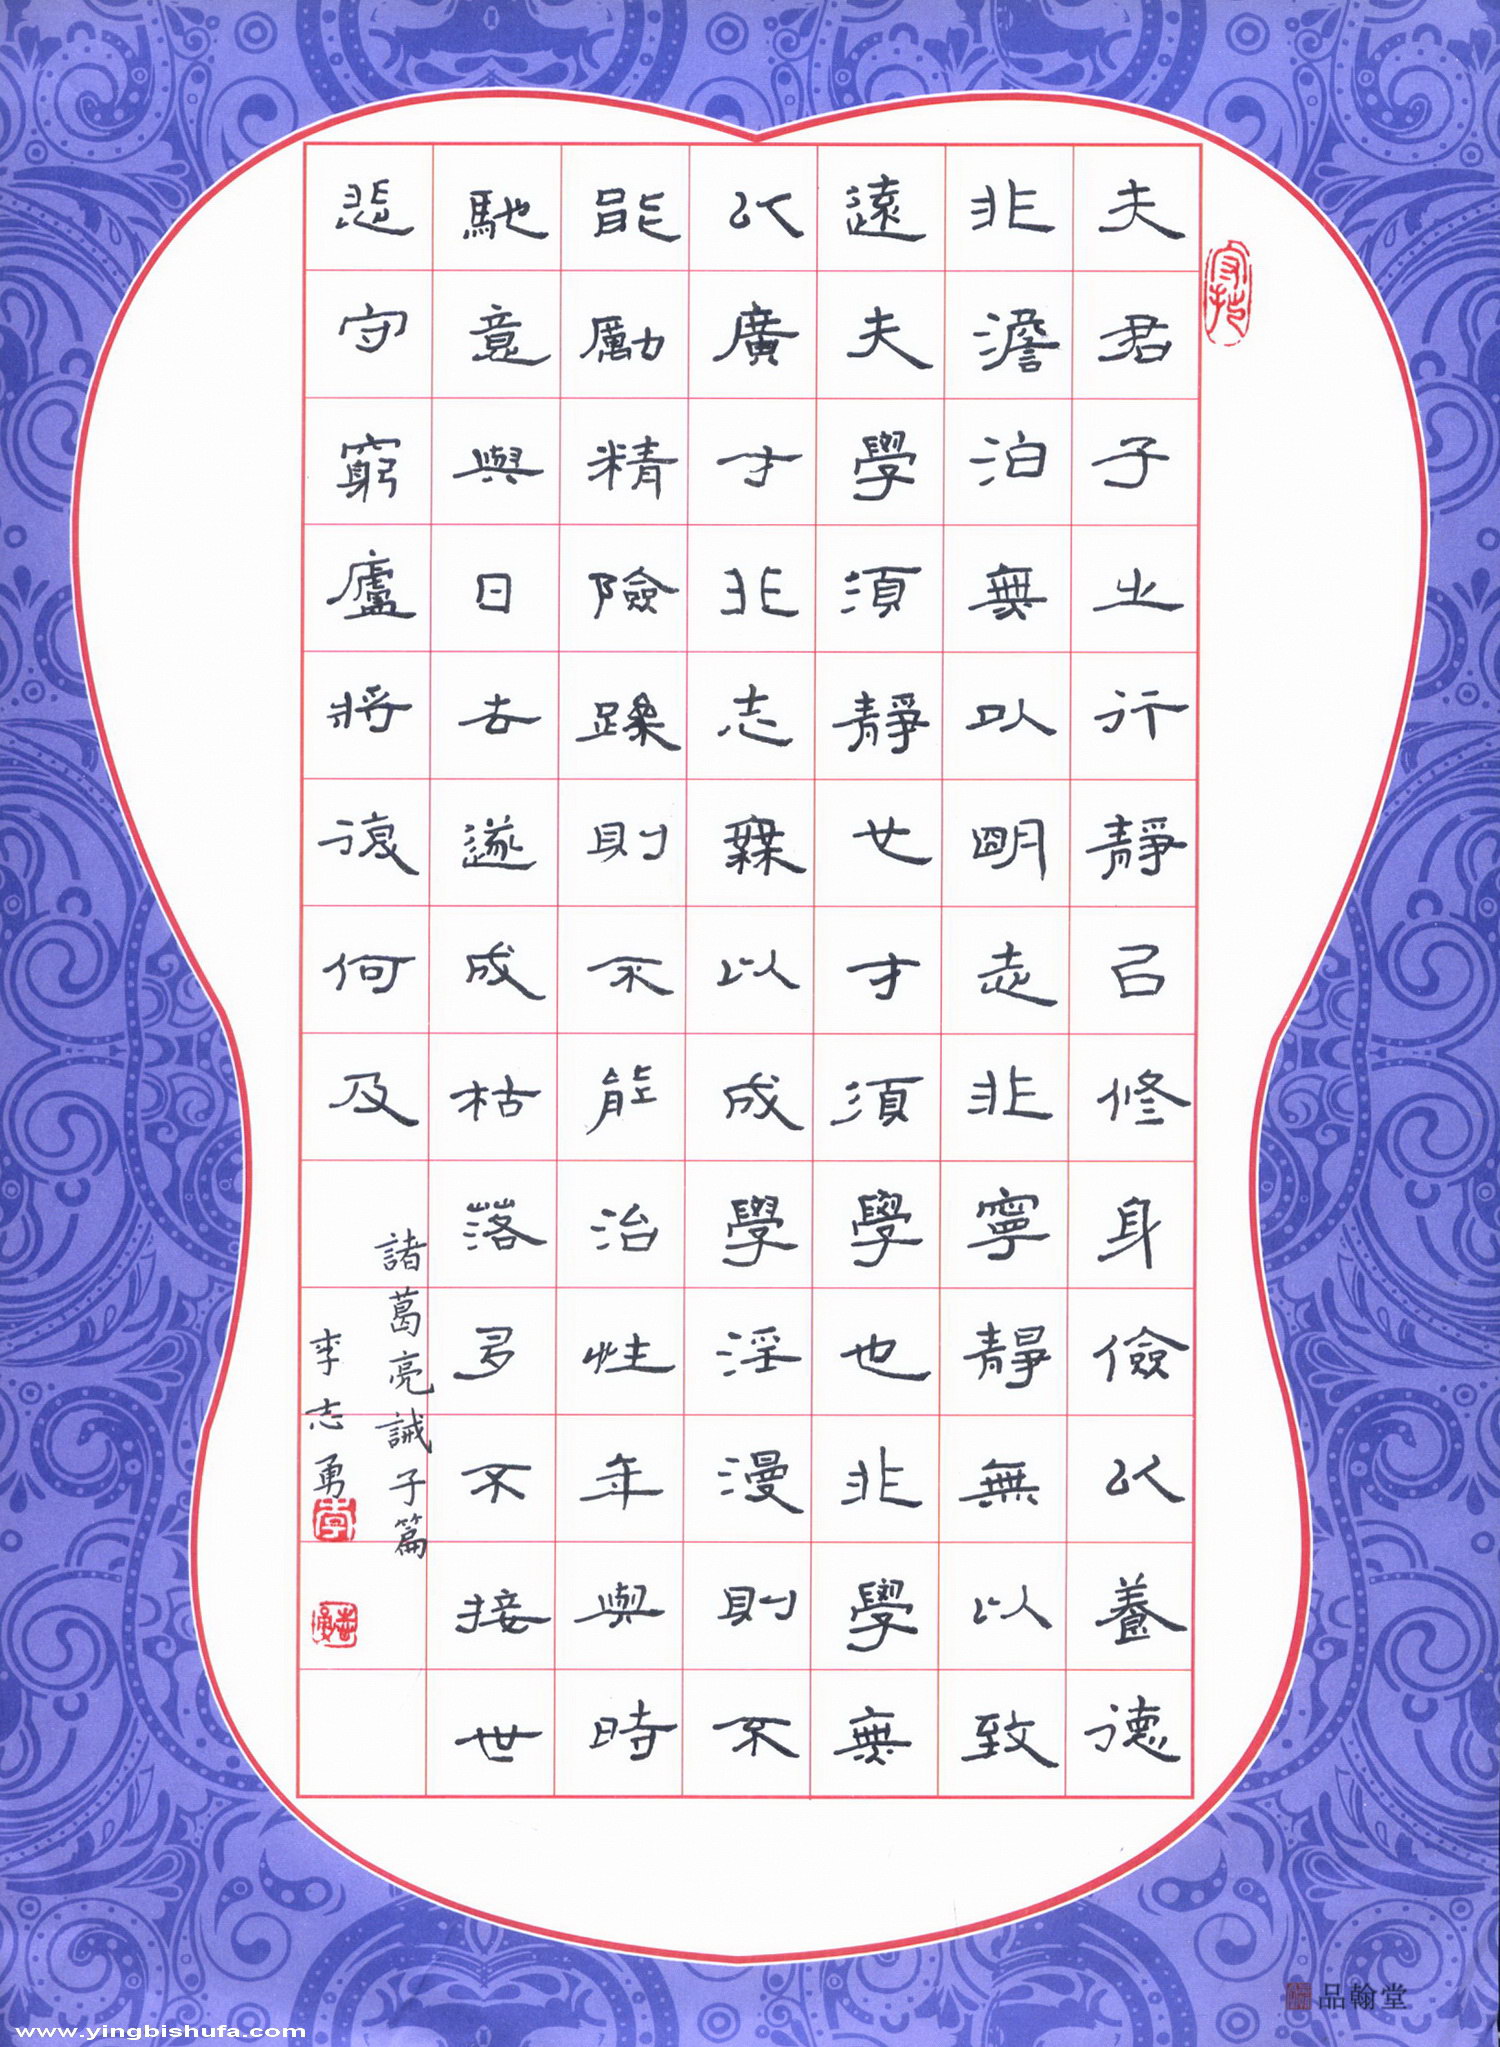 夫君子之行靜㠯修身儉以養德
非澹泊無以明志非寧靜無以致
遠夫學須靜也才須學也非學無
以廣才非志無以成學淫漫則不
能勵精險躁則不能治性年與時
馳意與日去遂成枯落多不接世
悲守窮廬將復何及
諸葛亮誡子篇
李志勇
品翰堂
www.yingbishufa.com